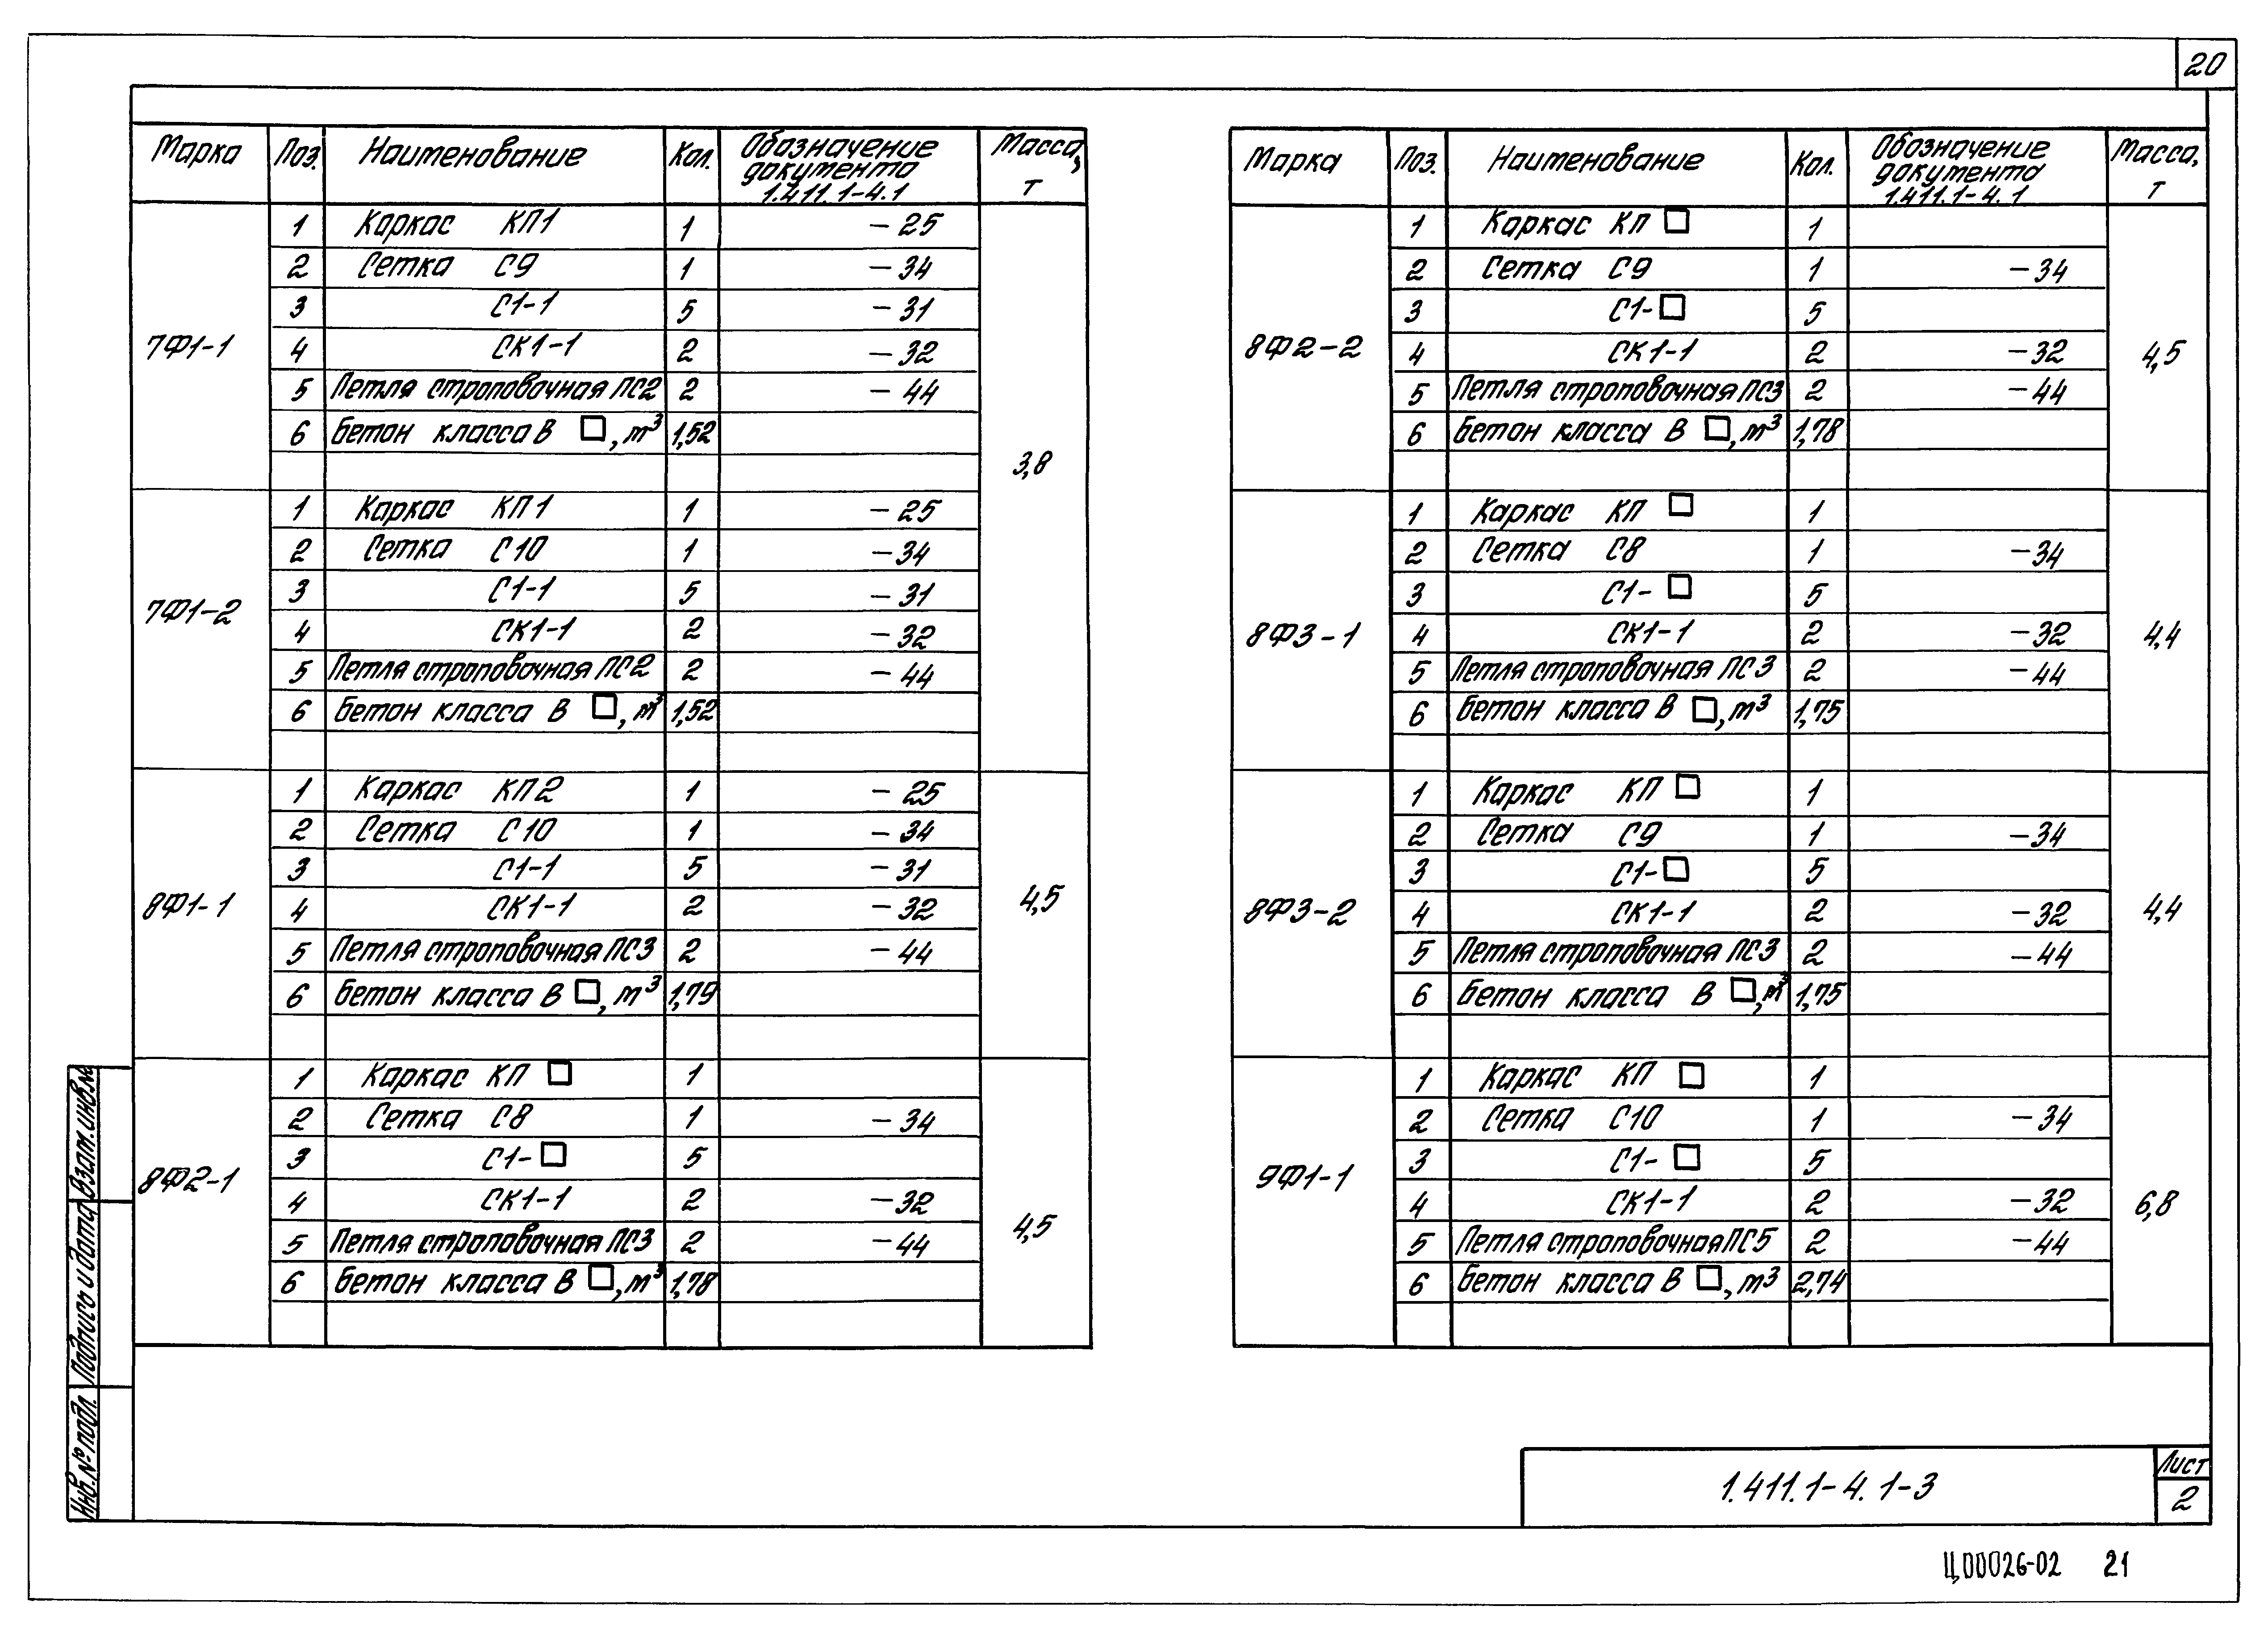 20
Марка Поз. Наименование Кол. Обозначение документа 1.411.1-4.1 Масса, т
7Ф1-1 3,8
1 Каркас КП1 1 -25
2 Сетка С9 1 -34
3 С1-1 5 -31
4 СК1-1 2 -32
5 Петля строповочная ПС2 2 -44
6 Бетон класса В □, м³ 1,52
7Ф1-2
1 Каркас КП1 1 -25
2 Сетка С10 1 -34
3 С1-1 5 -31
4 СК1-1 2 -32
5 Петля строповочная ПС2 2 -44
6 Бетон класса В □, м³ 1,52
8Ф1-1 4,5
1 Каркас КП2 1 -25
2 Сетка С10 1 -34
3 С1-1 5 -31
4 СК1-1 2 -32
5 Петля строповочная ПС3 2 -44
6 Бетон класса В □, м³ 1,79
8Ф2-1 4,5
1 Каркас КП □ 1
2 Сетка С8 1 -34
3 С1-□ 5
4 СК1-1 2 -32
5 Петля строповочная ПС3 2 -44
6 Бетон класса В □, м³ 1,78
Марка Поз. Наименование Кол. Обозначение документа 1.411.1-4.1 Масса, т
8Ф2-2 4,5
1 Каркас КП □ 1
2 Сетка С9 1 -34
3 С1-□ 5
4 СК1-1 2 -32
5 Петля строповочная ПС3 2 -44
6 Бетон класса В □, м³ 1,78
8Ф3-1 4,4
1 Каркас КП □ 1
2 Сетка С8 1 -34
3 С1-□ 5
4 СК1-1 2 -32
5 Петля строповочная ПС3 2 -44
6 Бетон класса В □, м³ 1,75
8Ф3-2 4,4
1 Каркас КП □ 1
2 Сетка С9 1 -34
3 С1-□ 5
4 СК1-1 2 -32
5 Петля строповочная ПС3 2 -44
6 Бетон класса В □, м³ 1,75
9Ф1-1 6,8
1 Каркас КП □ 1
2 Сетка С10 1 -34
3 С1-□ 5
4 СК1-1 2 -32
5 Петля строповочная ПС5 2 -44
6 Бетон класса В □, м³ 2,74
Взам.инв.№
Подпись и дата
Инв.№ подл.
1.411.1-4.1-3
Лист
2
Ц00026-02 21